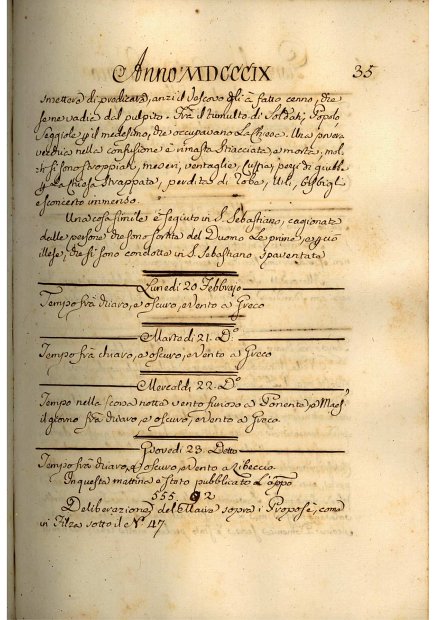 Anno MDCCCIX 35
smettere di predicare, anzi il Vescovo gli à fatto cenno, che
se ne vadia del pulpito. Frà il tumulto di Soldati, Popolo
Seggiole p il medesimo, che occupavano La Chiesa. Una povera
vecchia nella confusione è rimasta stiacciata e morta, mol
ti si sono stroppiati, ventaglie, cuffie, pezzi di giubbe
p La Chiesa strappata, perdita di robe, Urli, bisbigli
e sconcerto immenso.
Una cosa simile è seguito in S. Sebastiano, cagionata
dalle persone che sono sortite del Duomo Le prime,
illese, che si sono condotte in S. Sebastiano spaventate
Lunedi 20 Febbrajo
Tempo frà chiaro, e oscuro, e vento a Greco
Martedi 21. Do.
Tempo frà chiaro, e oscuro, e vento a Greco
Mercoldi 22. Do.
Tempo nella scorsa notte vento furioso a Ponente, e
il giorno frà chiaro, e oscuro, e vento a Greco
Giovedi 23. Detto
Tempo frà chiaro, e oscuro, e vento a Libeccio
In questa mattina è stato pubblicato L'appo
555 92
Deliberazione del Maire sopra i come
in Filza sotto il No. 47.